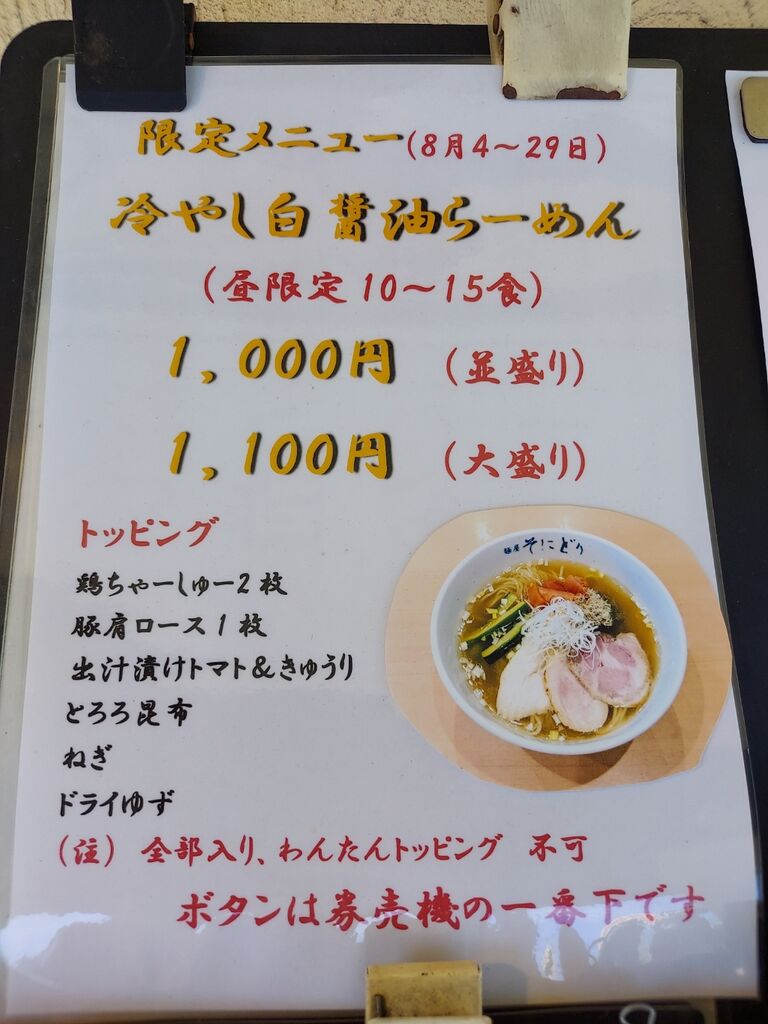 限定メニュー(8月4～29日)
冷やし白醤油らーめん
(昼限定10～15食)
1,000円 (並盛り)
1,100円 (大盛り)
トッピング
鶏ちゃーしゅー2枚
豚肩ロース1枚
出汁漬けトマト&きゅうり
とろろ昆布
ねぎ
ドライゆず
麺屋 そにどり
(注) 全部入り、わんたんトッピング 不可
ボタンは券売機の一番下です